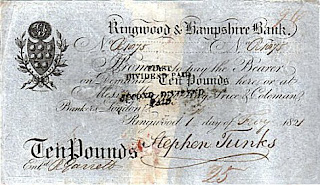 Ringwood & Hampshire Bank.
No A1075 No A1075
I Promise to pay the Bearer
FIRST
DIVIDEND PAID
on Demand Ten Pounds here or at
Messrs Price & Coleman
SECOND DIVIDEND
PAID
Bankers London
Ringwood 1 day of 1821
Ten Pounds Stephen Tunks
Entd